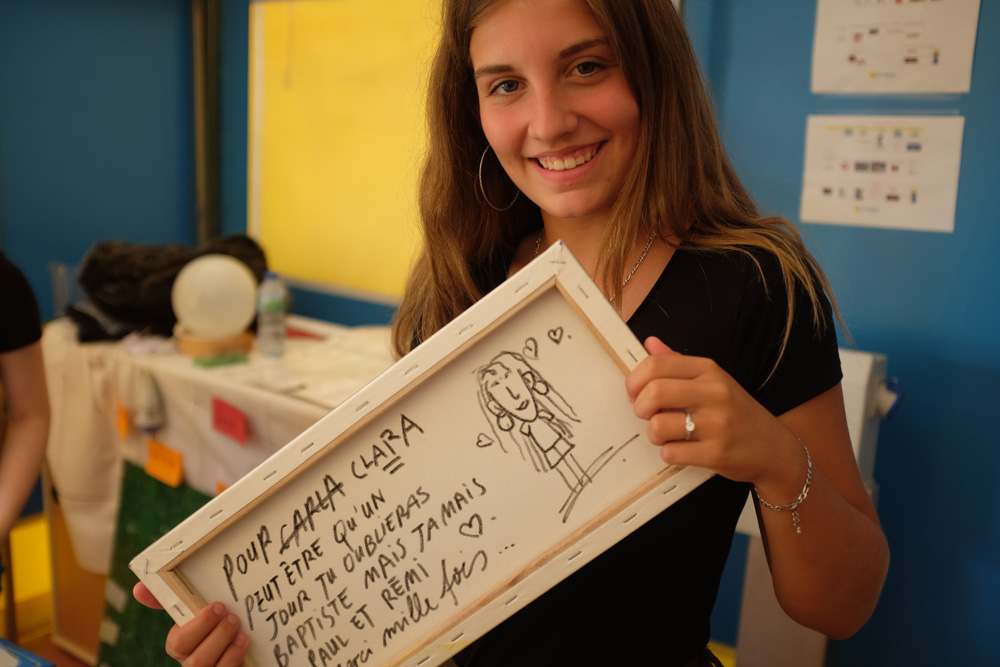 POUR CARLA CLARA
PEUT ÊTRE QU'UN
JOUR TU OUBLIERAS
BAPTISTE MAIS JAMAIS
PAUL ET RÉMI ♡.
merci mille fois ...